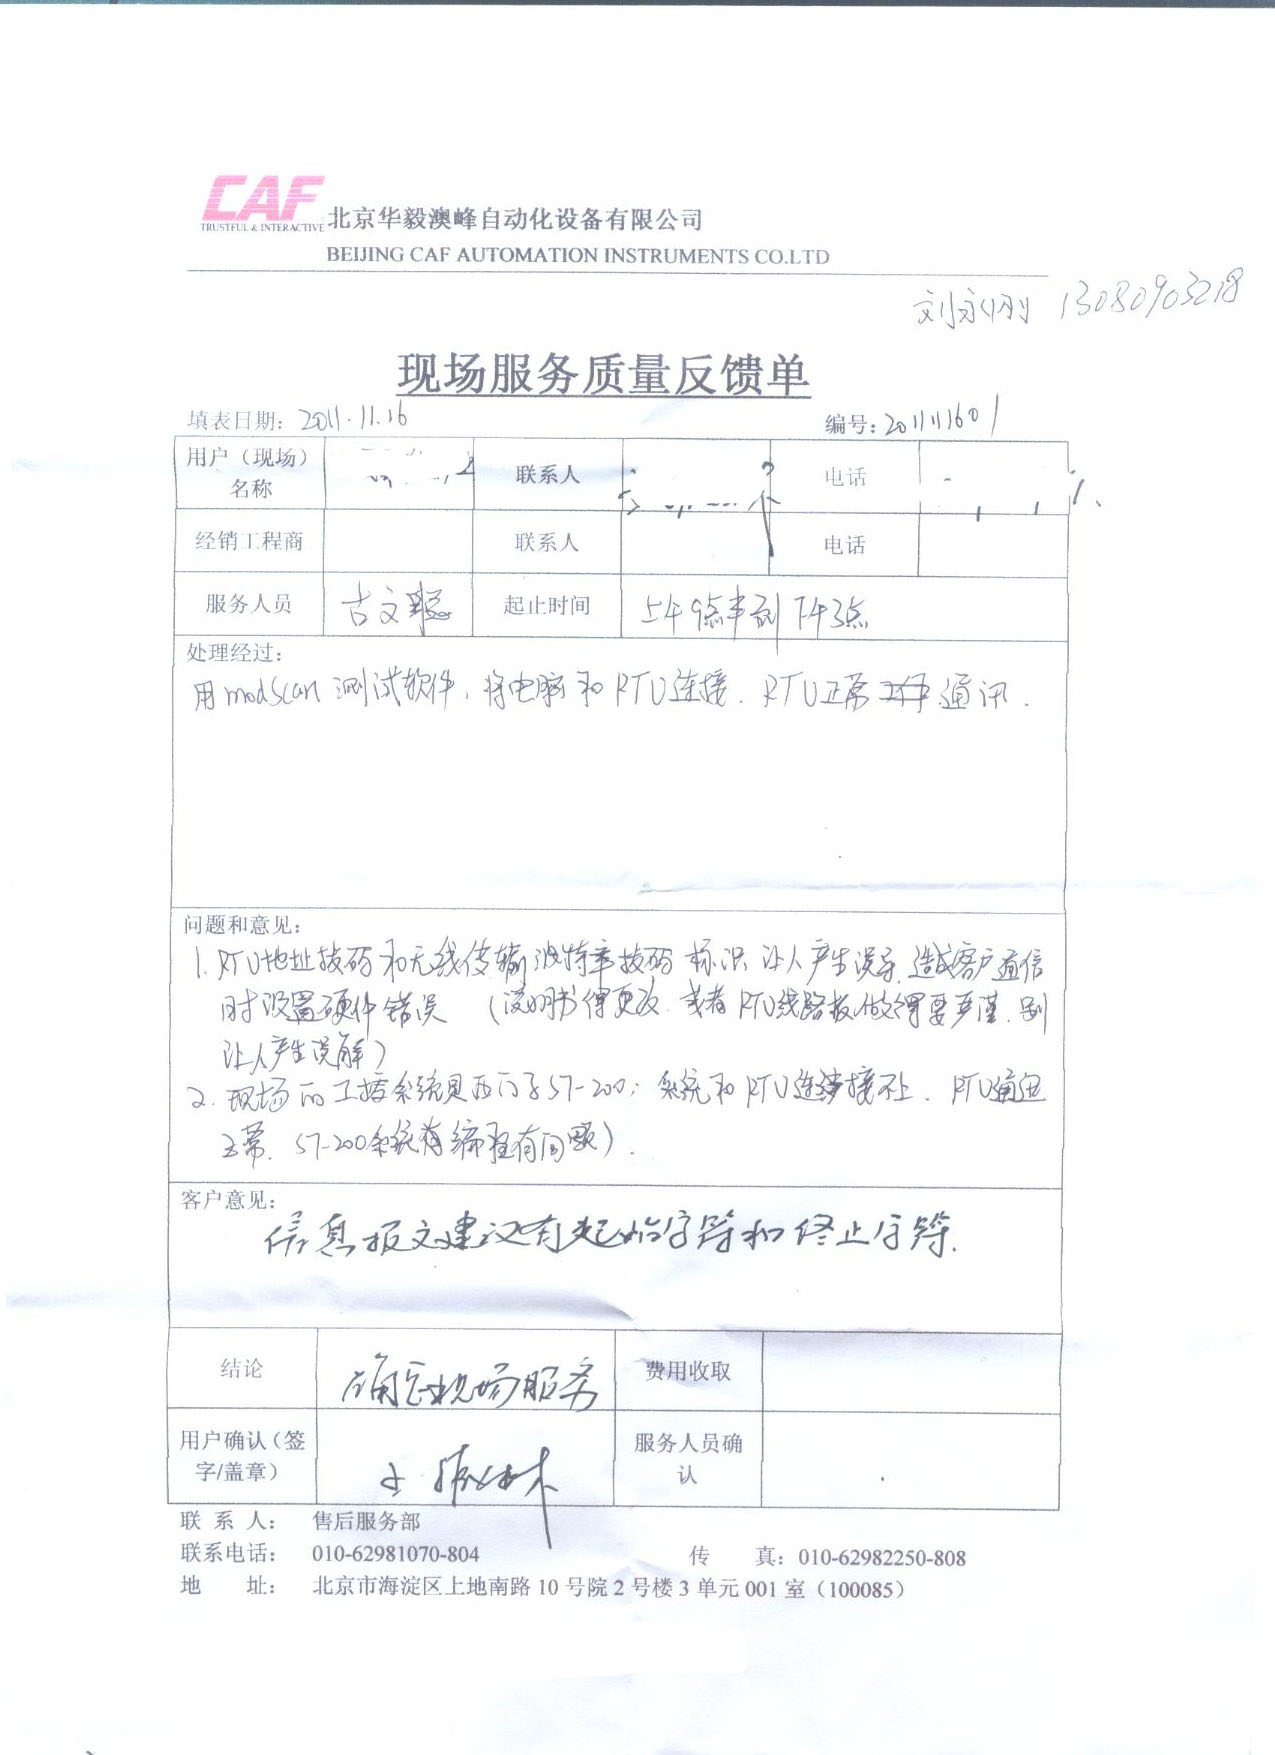 CAF
TRUSTFUL & INTERACTIVE
北京华毅澳峰自动化设备有限公司
BEIJING CAF AUTOMATION INSTRUMENTS CO.LTD
刘永刚 13080903218
现场服务质量反馈单
填表日期: 2011.11.16 编号: 2011111601
用户（现场）名称 联系人 电话
经销工程商 联系人 电话
服务人员 古文聪 起止时间 上午9点半到下午3点
处理经过:
用modscan测试软件,将电脑和RTU连接.RTU正常 通讯.
问题和意见:
1.RTU地址拨码和无线传输波特率拨码标识让人产生误导,造成客户通信
时设置硬件错误 (说明书得更改.或者RTU线路板做得要严谨.别
让人产生误解)
2.现场的工控系统是西门子S7-200;系统和RTU连接不上.RTU通迅
正常.S7-200系统有编程有问题).
客户意见:
信息报文建议有起始字符和终止字符.
结论 确定现场服务 费用收取
用户确认（签字/盖章） 服务人员确认
联 系 人: 售后服务部
联系电话: 010-62981070-804 传 真: 010-62982250-808
地 址: 北京市海淀区上地南路10号院2号楼3单元001室（100085）